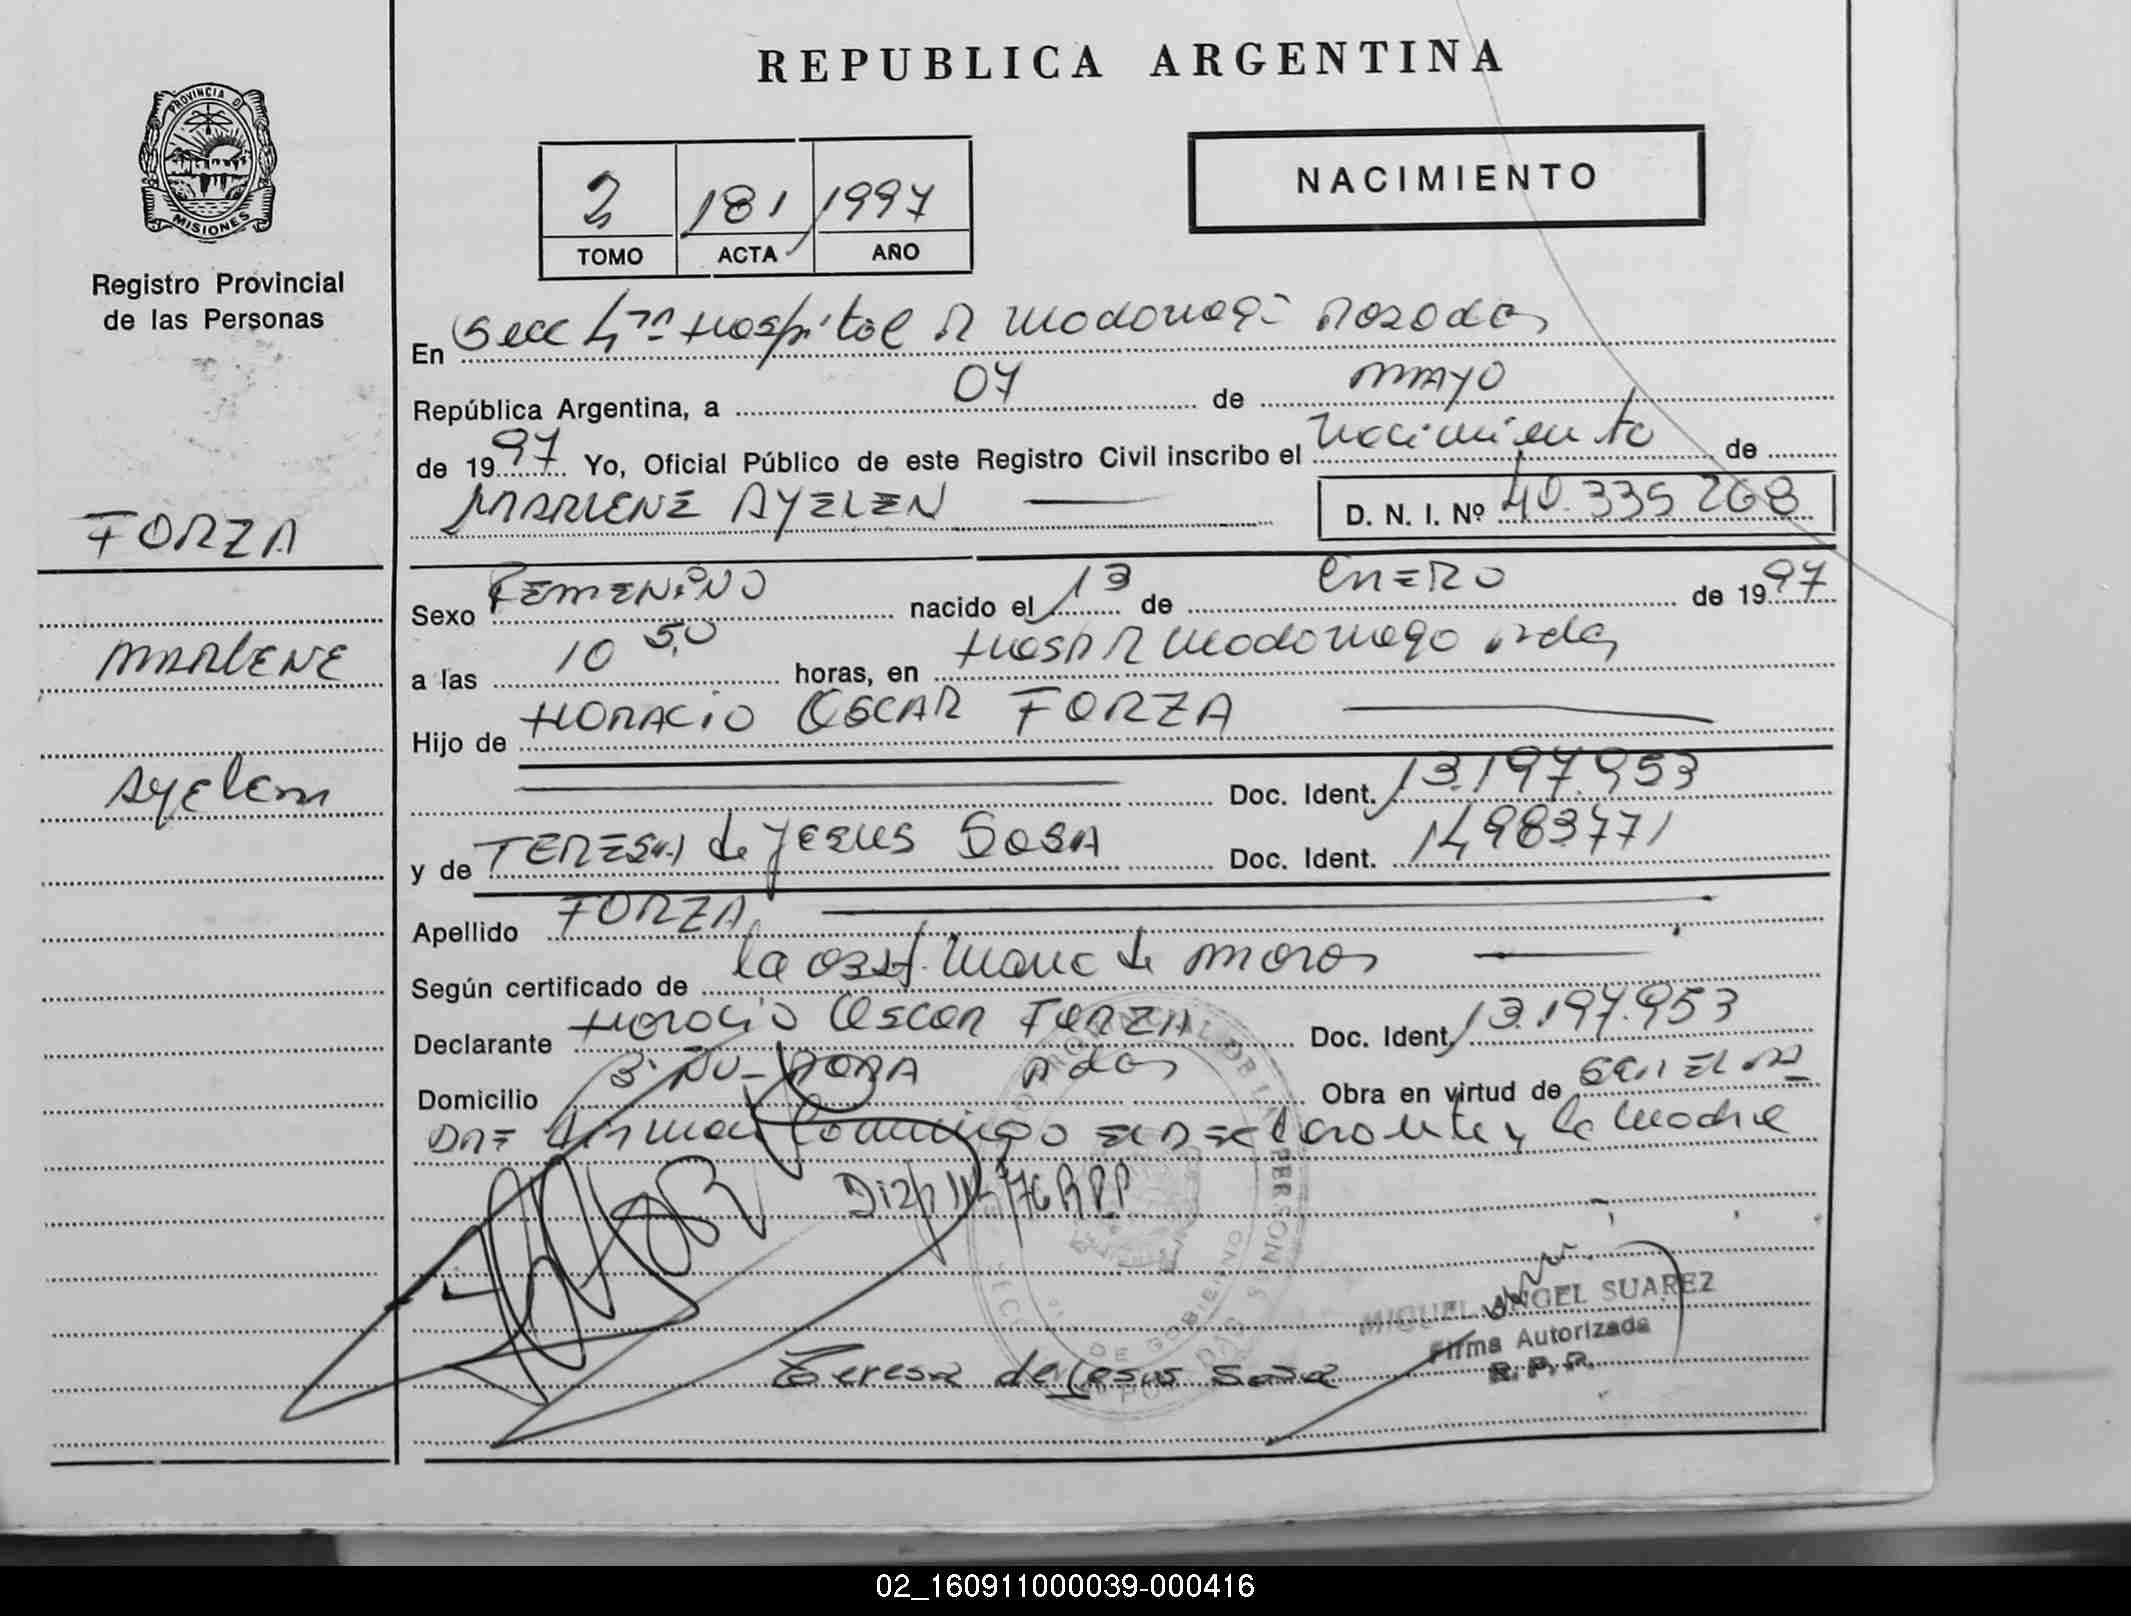 REPUBLICA ARGENTINA
PROVINCIA DE MISIONES
Registro Provincial
de las Personas
NACIMIENTO
2 181 1997
TOMO ACTA AÑO
En Secc Hospital R Madariaga Posadas
República Argentina, a 07 de MAYO
de 1997 Yo, Oficial Público de este Registro Civil inscribo el Nacimiento de
MARLENE AYELEN D. N. I. Nº 40.335 268
FORZA
MARLENE
Ayelen
Sexo FEMENINO nacido el 13 de ENERO de 1997
a las 10 50 horas, en Hosp R Madariaga Pdas
Hijo de HORACIO OSCAR FORZA
Doc. Ident. 13.197.953
y de TERESA de Jesus SOSA Doc. Ident. 14983771
Apellido FORZA
Según certificado de la obst. de
Declarante Horacio Oscar FORZA Doc. Ident. 13.197.953
Domicilio Pdas Obra en virtud de SER EL PA
DRE Firman Conmigo El Declarante y la Madre
RPP
MIGUEL ANGEL SUAREZ
Firma Autorizada
R. P. P.
Teresa de Jesus Sosa
02_160911000039-000416